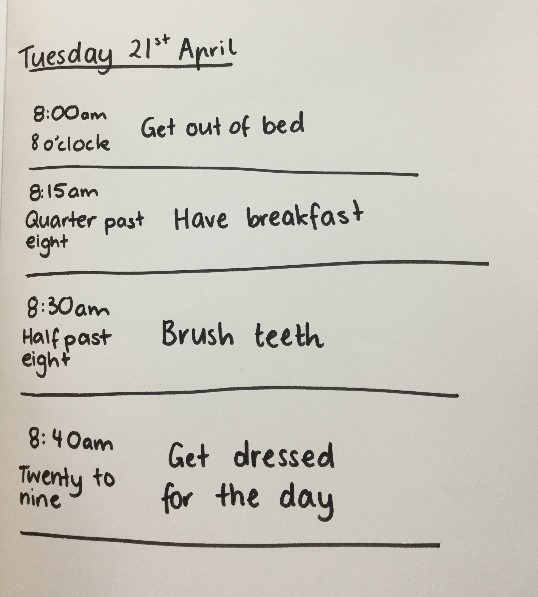 Tuesday 21st April
8:00am
8 o'clock
Get out of bed
8:15am
Quarter past
eight
Have breakfast
8:30am
Half past
eight
Brush teeth
8:40am
Twenty to
nine
Get dressed
for the day